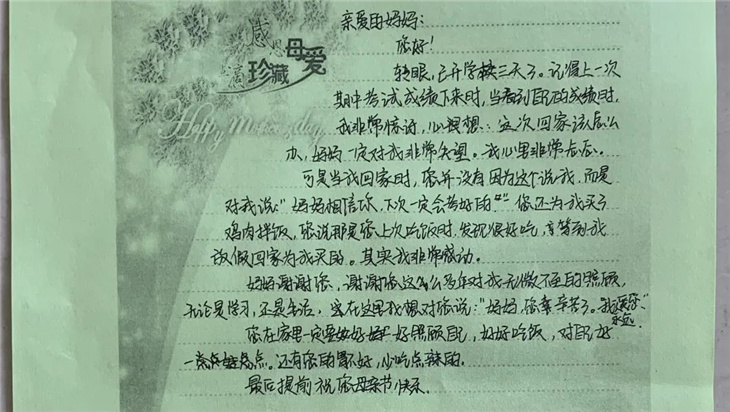 感恩
珍藏母爱
Happy Mother's day
亲爱的妈妈:
您好!
转眼,已开学快三天了。记得上一次
期中考试成绩下来时,当看到自己的成绩时,
我非常惊讶,心里想:这次回家该怎么
办,妈妈一定对我非常失望。我心里非常忐忑。
可是当我回家时,您并没有因为这个说我,而是
对我说:“妈妈相信你,下次一定会考好的。”您还为我买了
鸡肉拌饭,您说那是您上次吃饭时,发现很好吃,等到我
放假回家为我买的。其实我非常感动。
妈妈谢谢您,谢谢您这么多年对我无微不至的照顾,
无论是学习,还是生活,我在这里我想对您说:“妈妈,您辛苦了。我永远爱您”
您在家里一定要好好照顾自己,好好吃饭,对自己好
一点。还有您的胃不好,少吃点辣的。
最后提前祝您母亲节快乐